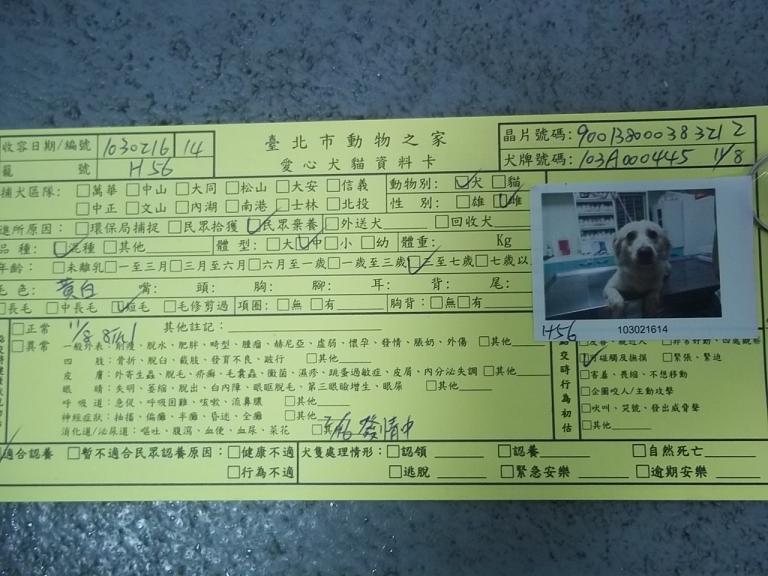 收容日期/編號 1030216 14
臺北市動物之家
晶片號碼: 900138000383212
籠 號 H56
愛心犬貓資料卡
犬牌號碼: 103A000445 11/8
捕犬區隊: □萬華 □中山 □大同 □松山 □大安 □信義 動物別: ☑犬 □貓
□中正 □文山 □內湖 □南港 □士林 □北投 性 別: □雄 ☑雌
進所原因: □環保局捕捉 □民眾拾獲 ☑民眾棄養 □外送犬 □回收犬
品 種: ☑混種 □其他 體 型: □大 ☑中 □小 □幼 體重: Kg
年齡: □未離乳 □一至三月 □三月至六月 □六月至一歲 □一歲至三歲 ☑三至七歲 □七歲以
毛 色: 黃白 嘴: 頭: 胸: 腳: 耳: 背: 尾:
□長毛 □中長毛 ☑短毛 □毛修剪過 項圈: □無 □有 胸背: □無 □有
H56 103021614
□正常 11/8 其他註記:
□異常 一般外表: 剖產、脫水、肥胖、畸型、腫瘤、赫尼亞、虛弱、懷孕、發情、脹奶、外傷 □其他
四 肢: 骨折、脫臼、截肢、發育不良、跛行 □其他
皮 膚: 外寄生蟲、脫毛、疥癬、毛囊蟲、黴菌、濕疹、跳蚤過敏症、皮屑、內分泌失調 □其他
眼 睛: 失明、萎縮、脫出、白內障、眼眶脫毛、第三眼瞼增生、眼屎 □其他
呼 吸 道: 急促、呼吸困難、咳嗽、流鼻膿 □其他
神經症狀: 抽搐、偏癱、半癱、昏迷、全癱 □其他
消化道/泌尿道: 嘔吐、腹瀉、血便、血尿、菜花 □其 發情中
送交時行為初估
□友善、親近人 □非常好動、四處觀察
☑可碰觸及撫摸 □緊張、緊迫
□害羞、畏縮、不想移動
□企圖咬人/主動攻擊
□吠叫、哭號、發出威脅聲
□其他
適合認養 □暫不適合民眾認養原因: □健康不適 犬隻處理情形: □認領 □認養 □自然死亡
□行為不適 □逃脫 □緊急安樂 □逾期安樂